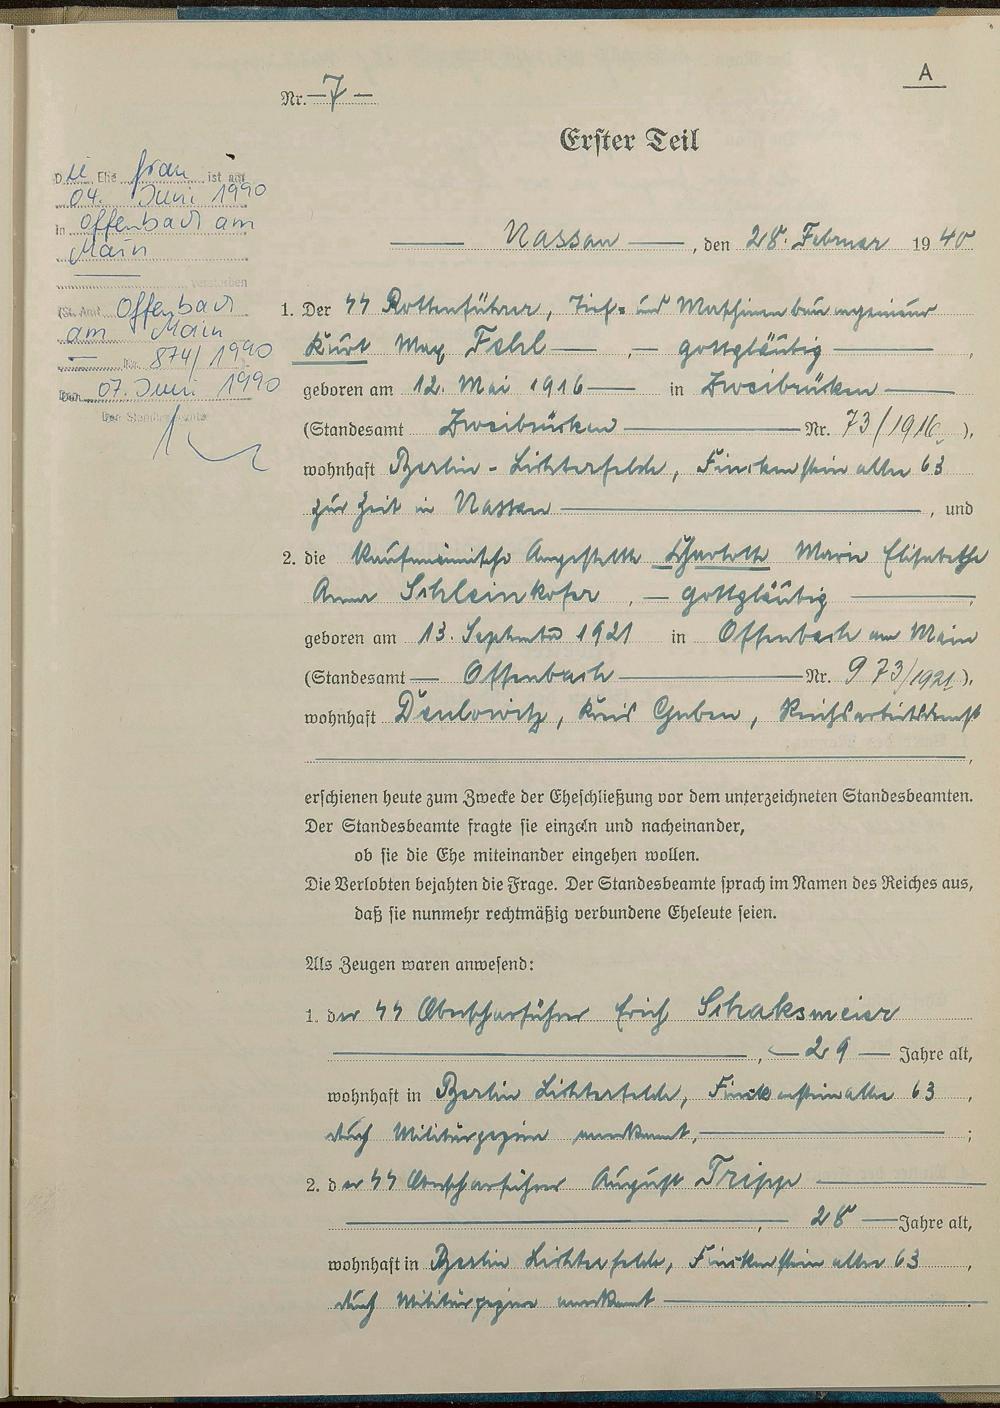 A
Nr. — 7 —
Erster Teil
Die Ehefrau ist am
04. Juni 1990
in Offenbach am
Main
verstorben
(St. Amt Offenbach
am Main
— Nr. 874/1990
Den 07. Juni 1990
Der Standesbeamte
Nassau, den 28. Februar 1940
1. Der SS Rottenführer, Tief- und Maschinenbauingenieur
Kurt Max Fehl —, — gottgläubig —,
geboren am 12. Mai 1916 — in Zweibrücken —
(Standesamt Zweibrücken — Nr. 73/1916),
wohnhaft Berlin-Lichterfelde, Finckensteinallee 63
zur Zeit in Nassau —, und
2. die kaufmännische Angestellte Charlotte Marie Elisabethe
Anna Schleinkofer, — gottgläubig —,
geboren am 13. September 1921 in Offenbach am Main
(Standesamt — Offenbach — Nr. 973/1921),
wohnhaft, Kreis Guben, Reichsarbeitsdienst
erschienen heute zum Zwecke der Eheschließung vor dem unterzeichneten Standesbeamten.
Der Standesbeamte fragte sie einzeln und nacheinander,
ob sie die Ehe miteinander eingehen wollen.
Die Verlobten bejahten die Frage. Der Standesbeamte sprach im Namen des Reiches aus,
daß sie nunmehr rechtmäßig verbundene Eheleute seien.
Als Zeugen waren anwesend:
1. der SS Oberscharführer Erich Schaksmeier
—, — 29 — Jahre alt,
wohnhaft in Berlin Lichterfelde, Finckensteinallee 63,
durch Militärpapiere anerkannt, —;
2. der SS Oberscharführer August Tripp —
—, 28 — Jahre alt,
wohnhaft in Berlin Lichterfelde, Finckensteinallee 63,
durch Militärpapiere anerkannt —.